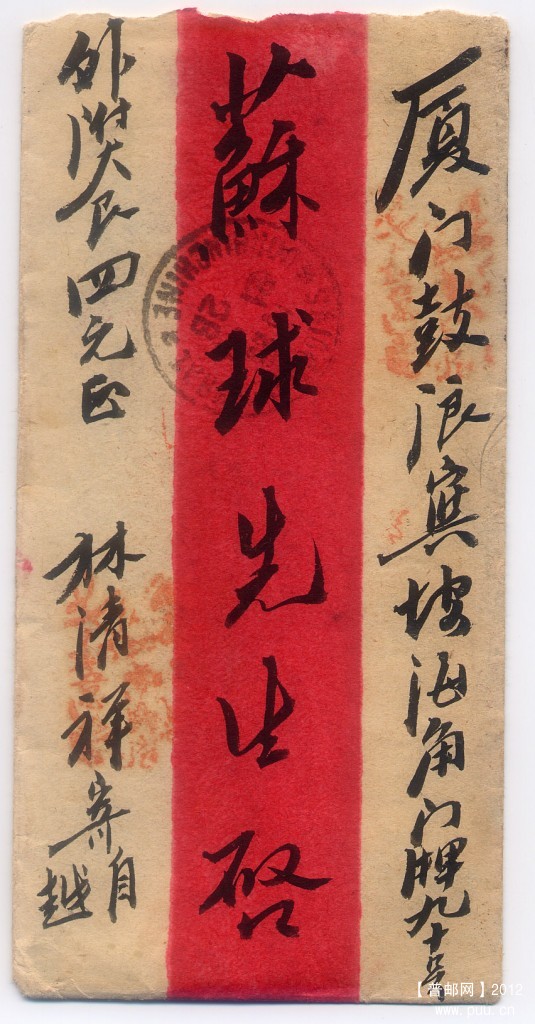 厦门鼓浪宾坡海角门牌九十号
蘇球先生啓
外附食四元正
林清祥寄自越
【普邮网】2012
www.puu.cn